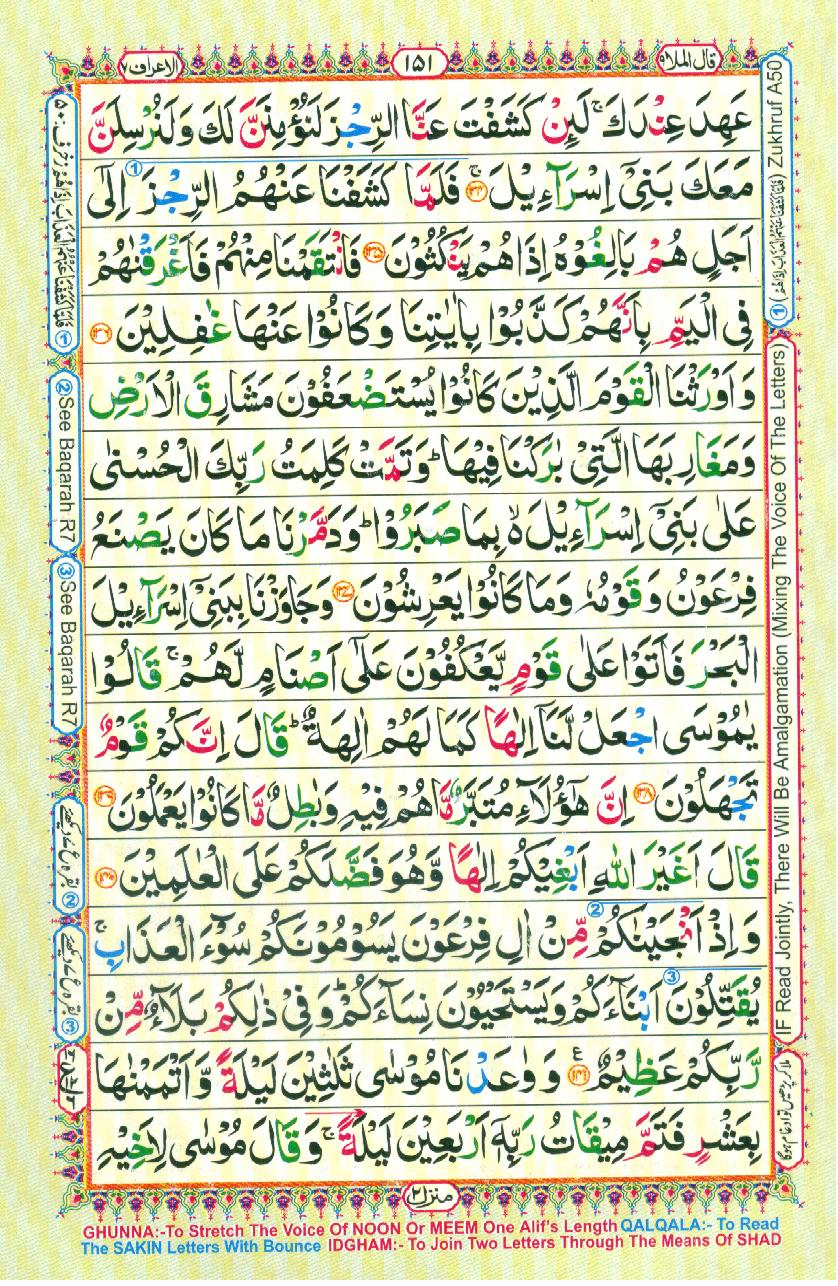 قال الملاه
١٥١
الاعراف٧
عَهِدَ عِنْدَكَ ۚ لَئِنْ كَشَفْتَ عَنَّا الرِّجْزَ لَنُؤْمِنَنَّ لَكَ وَلَنُرْسِلَنَّ
مَعَكَ بَنِيْۤ اِسْرَآءِيْلَ ۚ ﴿۱۳۴﴾ فَلَمَّا كَشَفْنَا عَنْهُمُ الرِّجْزَ اِلٰۤى
اَجَلٍ هُمْ بَالِغُوْهُ اِذَا هُمْ يَنْكُثُوْنَ ﴿۱۳۵﴾ فَانْتَقَمْنَا مِنْهُمْ فَاَغْرَقْنٰهُمْ
فِى الْيَمِّ بِاَنَّهُمْ كَذَّبُوْا بِاٰيٰتِنَا وَكَانُوْا عَنْهَا غٰفِلِيْنَ ﴿۱۳۶﴾
وَاَوْرَثْنَا الْقَوْمَ الَّذِيْنَ كَانُوْا يُسْتَضْعَفُوْنَ مَشَارِقَ الْاَرْضِ
وَمَغَارِبَهَا الَّتِيْ بٰرَكْنَا فِيْهَا ؕ وَتَمَّتْ كَلِمَتُ رَبِّكَ الْحُسْنٰى
عَلٰى بَنِيْۤ اِسْرَآءِيْلَ ۙ بِمَا صَبَرُوْا ؕ وَدَمَّرْنَا مَا كَانَ يَصْنَعُ
فِرْعَوْنُ وَقَوْمُهٗ وَمَا كَانُوْا يَعْرِشُوْنَ ﴿۱۳۷﴾ وَجَاوَزْنَا بِبَنِيْۤ اِسْرَآءِيْلَ
الْبَحْرَ فَاَتَوْا عَلٰى قَوْمٍ يَّعْكُفُوْنَ عَلٰۤى اَصْنَامٍ لَّهُمْ ۚ قَالُوْا
يٰمُوْسَى اجْعَلْ لَّنَاۤ اِلٰهًا كَمَا لَهُمْ اٰلِهَةٌ ؕ قَالَ اِنَّكُمْ قَوْمٌ
تَجْهَلُوْنَ ﴿۱۳۸﴾ اِنَّ هٰۤؤُلَآءِ مُتَبَّرٌ مَّا هُمْ فِيْهِ وَبٰطِلٌ مَّا كَانُوْا يَعْمَلُوْنَ ﴿۱۳۹﴾
قَالَ اَغَيْرَ اللّٰهِ اَبْغِيْكُمْ اِلٰهًا وَّهُوَ فَضَّلَكُمْ عَلَى الْعٰلَمِيْنَ ﴿۱۴۰﴾
وَاِذْ اَنْجَيْنٰكُمْ مِّنْ اٰلِ فِرْعَوْنَ يَسُوْمُوْنَكُمْ سُوْٓءَ الْعَذَابِ ۚ
يُقَتِّلُوْنَ اَبْنَآءَكُمْ وَيَسْتَحْيُوْنَ نِسَآءَكُمْ ؕ وَفِيْ ذٰلِكُمْ بَلَآءٌ مِّنْ
رَّبِّكُمْ عَظِيْمٌ ﴿۱۴۱﴾ وَوٰعَدْنَا مُوْسٰى ثَلٰثِيْنَ لَيْلَةً وَّاَتْمَمْنٰهَا
بِعَشْرٍ فَتَمَّ مِيْقَاتُ رَبِّهٖۤ اَرْبَعِيْنَ لَيْلَةً ۚ وَقَالَ مُوْسٰى لِاَخِيْهِ
منزل٢
Zukhruf A50
① IF Read Jointly, There Will Be Amalgamation (Mixing The Voice Of The Letters)
② See Baqarah R7
③ See Baqarah R7
GHUNNA:-To Stretch The Voice Of NOON Or MEEM One Alif's Length QALQALA:- To Read
The SAKIN Letters With Bounce IDGHAM:- To Join Two Letters Through The Means Of SHAD